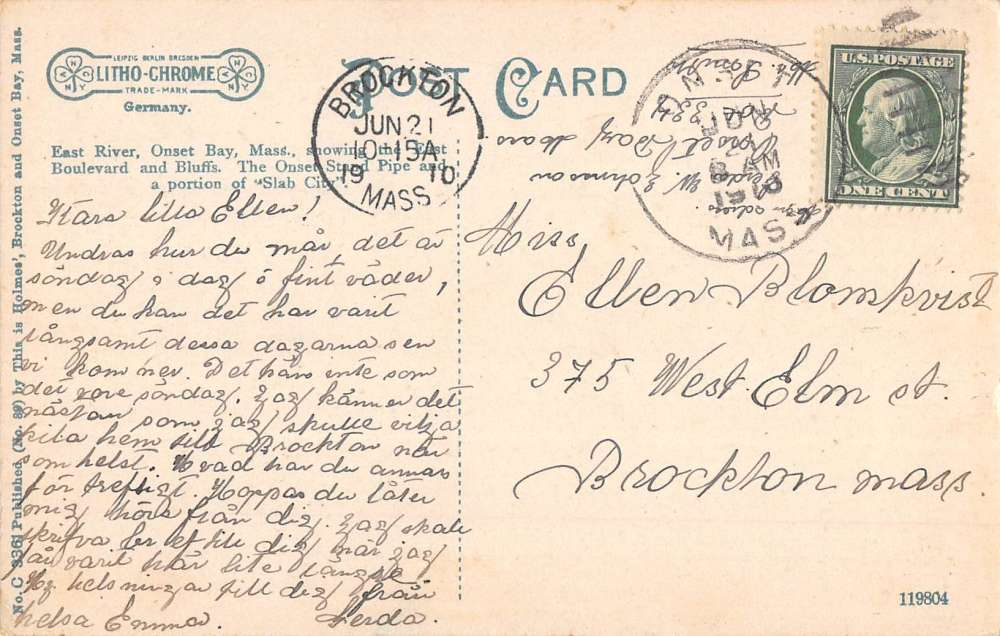 No. C 3361 Published (No. 89) by This is Holmes', Brockton and Onset Bay, Mass.
LEIPZIG BERLIN DRESDEN
LITHO-CHROME
TRADE-MARK
Germany.
POST CARD
East River, Onset Bay, Mass., showing the East
Boulevard and Bluffs. The Onset Stand Pipe and
a portion of "Slab City
BROCKTON
JUN 21
10-15A
19 10
MASS.
U.S. POSTAGE
ONE CENT
MASS
AM
Kära lilla Ellen!
Undras hur du mår, det är
söndag i dag o fint väder,
men du kan det har varit
långsamt dessa dagarna sen
vi kom ner. Det känns inte som
det vore söndag. Jag känner det
nästan som jag skulle vilja
kila hem till Brockton när
som helst. Hvad har du annars
för treftigt. Hoppas du låter
mig höra från dig. Jag skall
skrifva bref till dig när jag
varit här lite längre
Hj helsningar till dig från
helsa Emma. Gerda.
Gerda W. Johnson
Onset Bay Mass
Box 334
Miss
Ellen Blomkvist
375 West Elm st.
Brockton Mass
119804